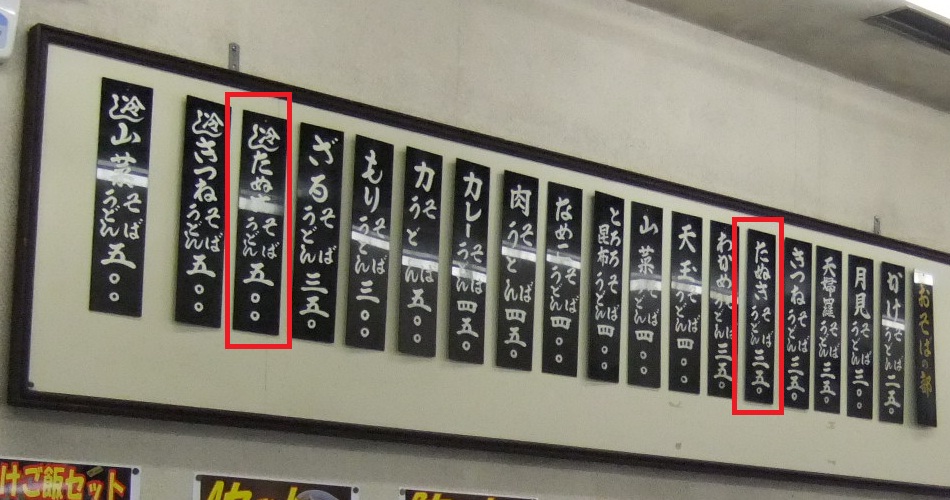 おそばの部
かけそばうどん二五〇
月見そばうどん三〇〇
天婦羅そばうどん三五〇
きつねそばうどん三五〇
たぬきそばうどん三五〇
わかめそばうどん三五〇
天玉そばうどん四〇〇
山菜そばうどん四〇〇
とろろ昆布そばうどん四〇〇
なめこそばうどん四〇〇
肉そばうどん四五〇
カレーそばうどん四五〇
力そばうどん五〇〇
もりそばうどん三〇〇
ざるそばうどん三五〇
冷たぬきそばうどん五〇〇
冷きつねそばうどん五〇〇
冷山菜そばうどん五〇〇
けご飯セット